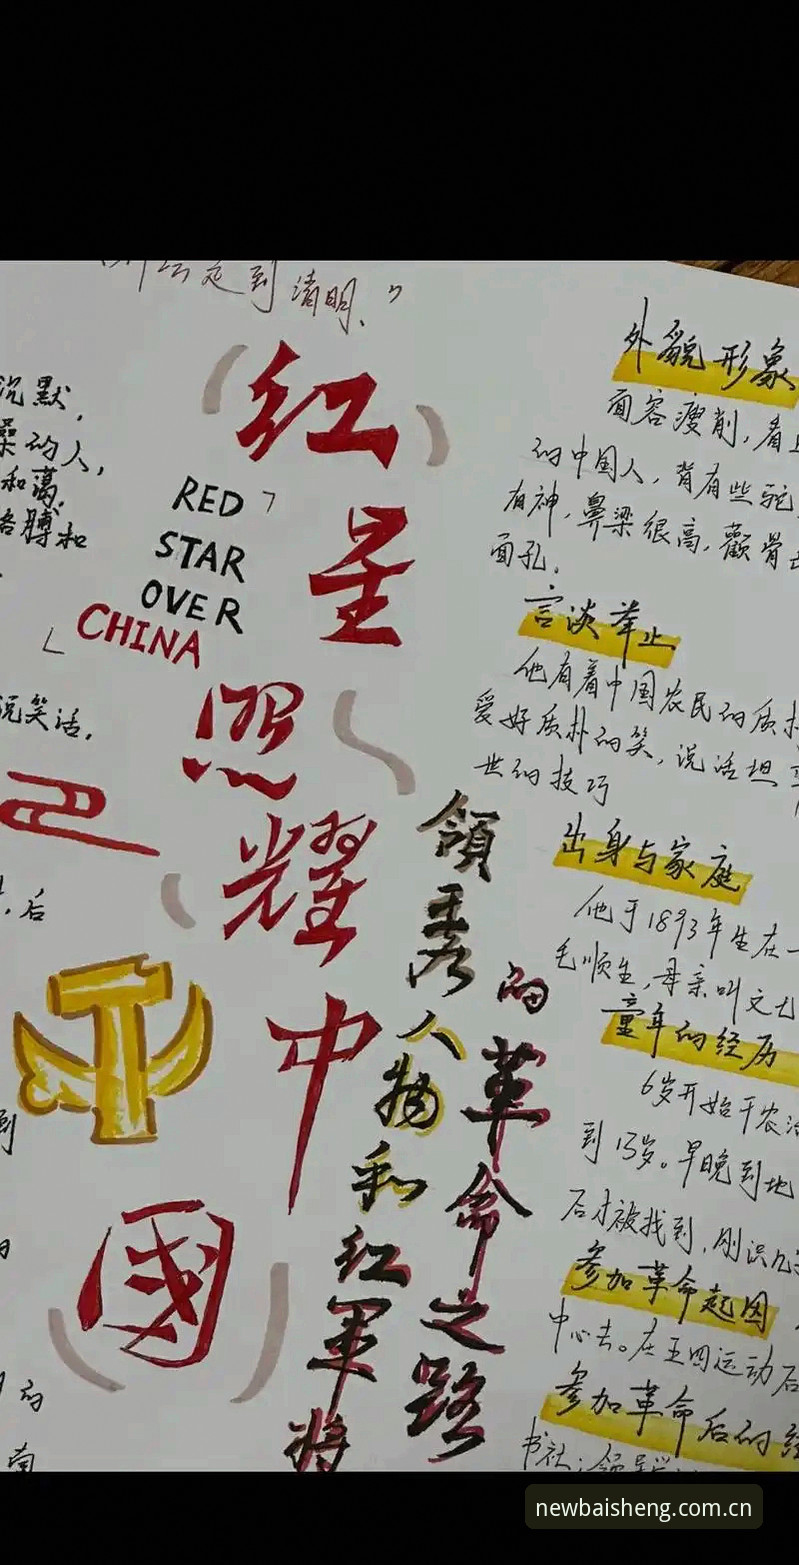 走到清明。”
沉默，
的人，
和蔼，
胳膊和
说笑话，
，后
到
的
南
红星照耀中國
RED
STAR
OVER
CHINA
领袖人物和红军将
的革命之路
外貌形象
面容瘦削，看上
的中国人，背有些驼，
有神，鼻梁很高，颧骨
面孔。
言谈举止
他有着中国农民的质朴
爱好质朴的笑，说话坦率
世的技巧
出身与家庭
他于1893年生在一
毛顺生，母亲叫文七
童年的经历
6岁开始干农活
到13岁。早晚到地
后才被找到，刚识几
参加革命起因
中心去。在五四运动后
参加革命后的经
书社；领导
newbaisheng.com.cn